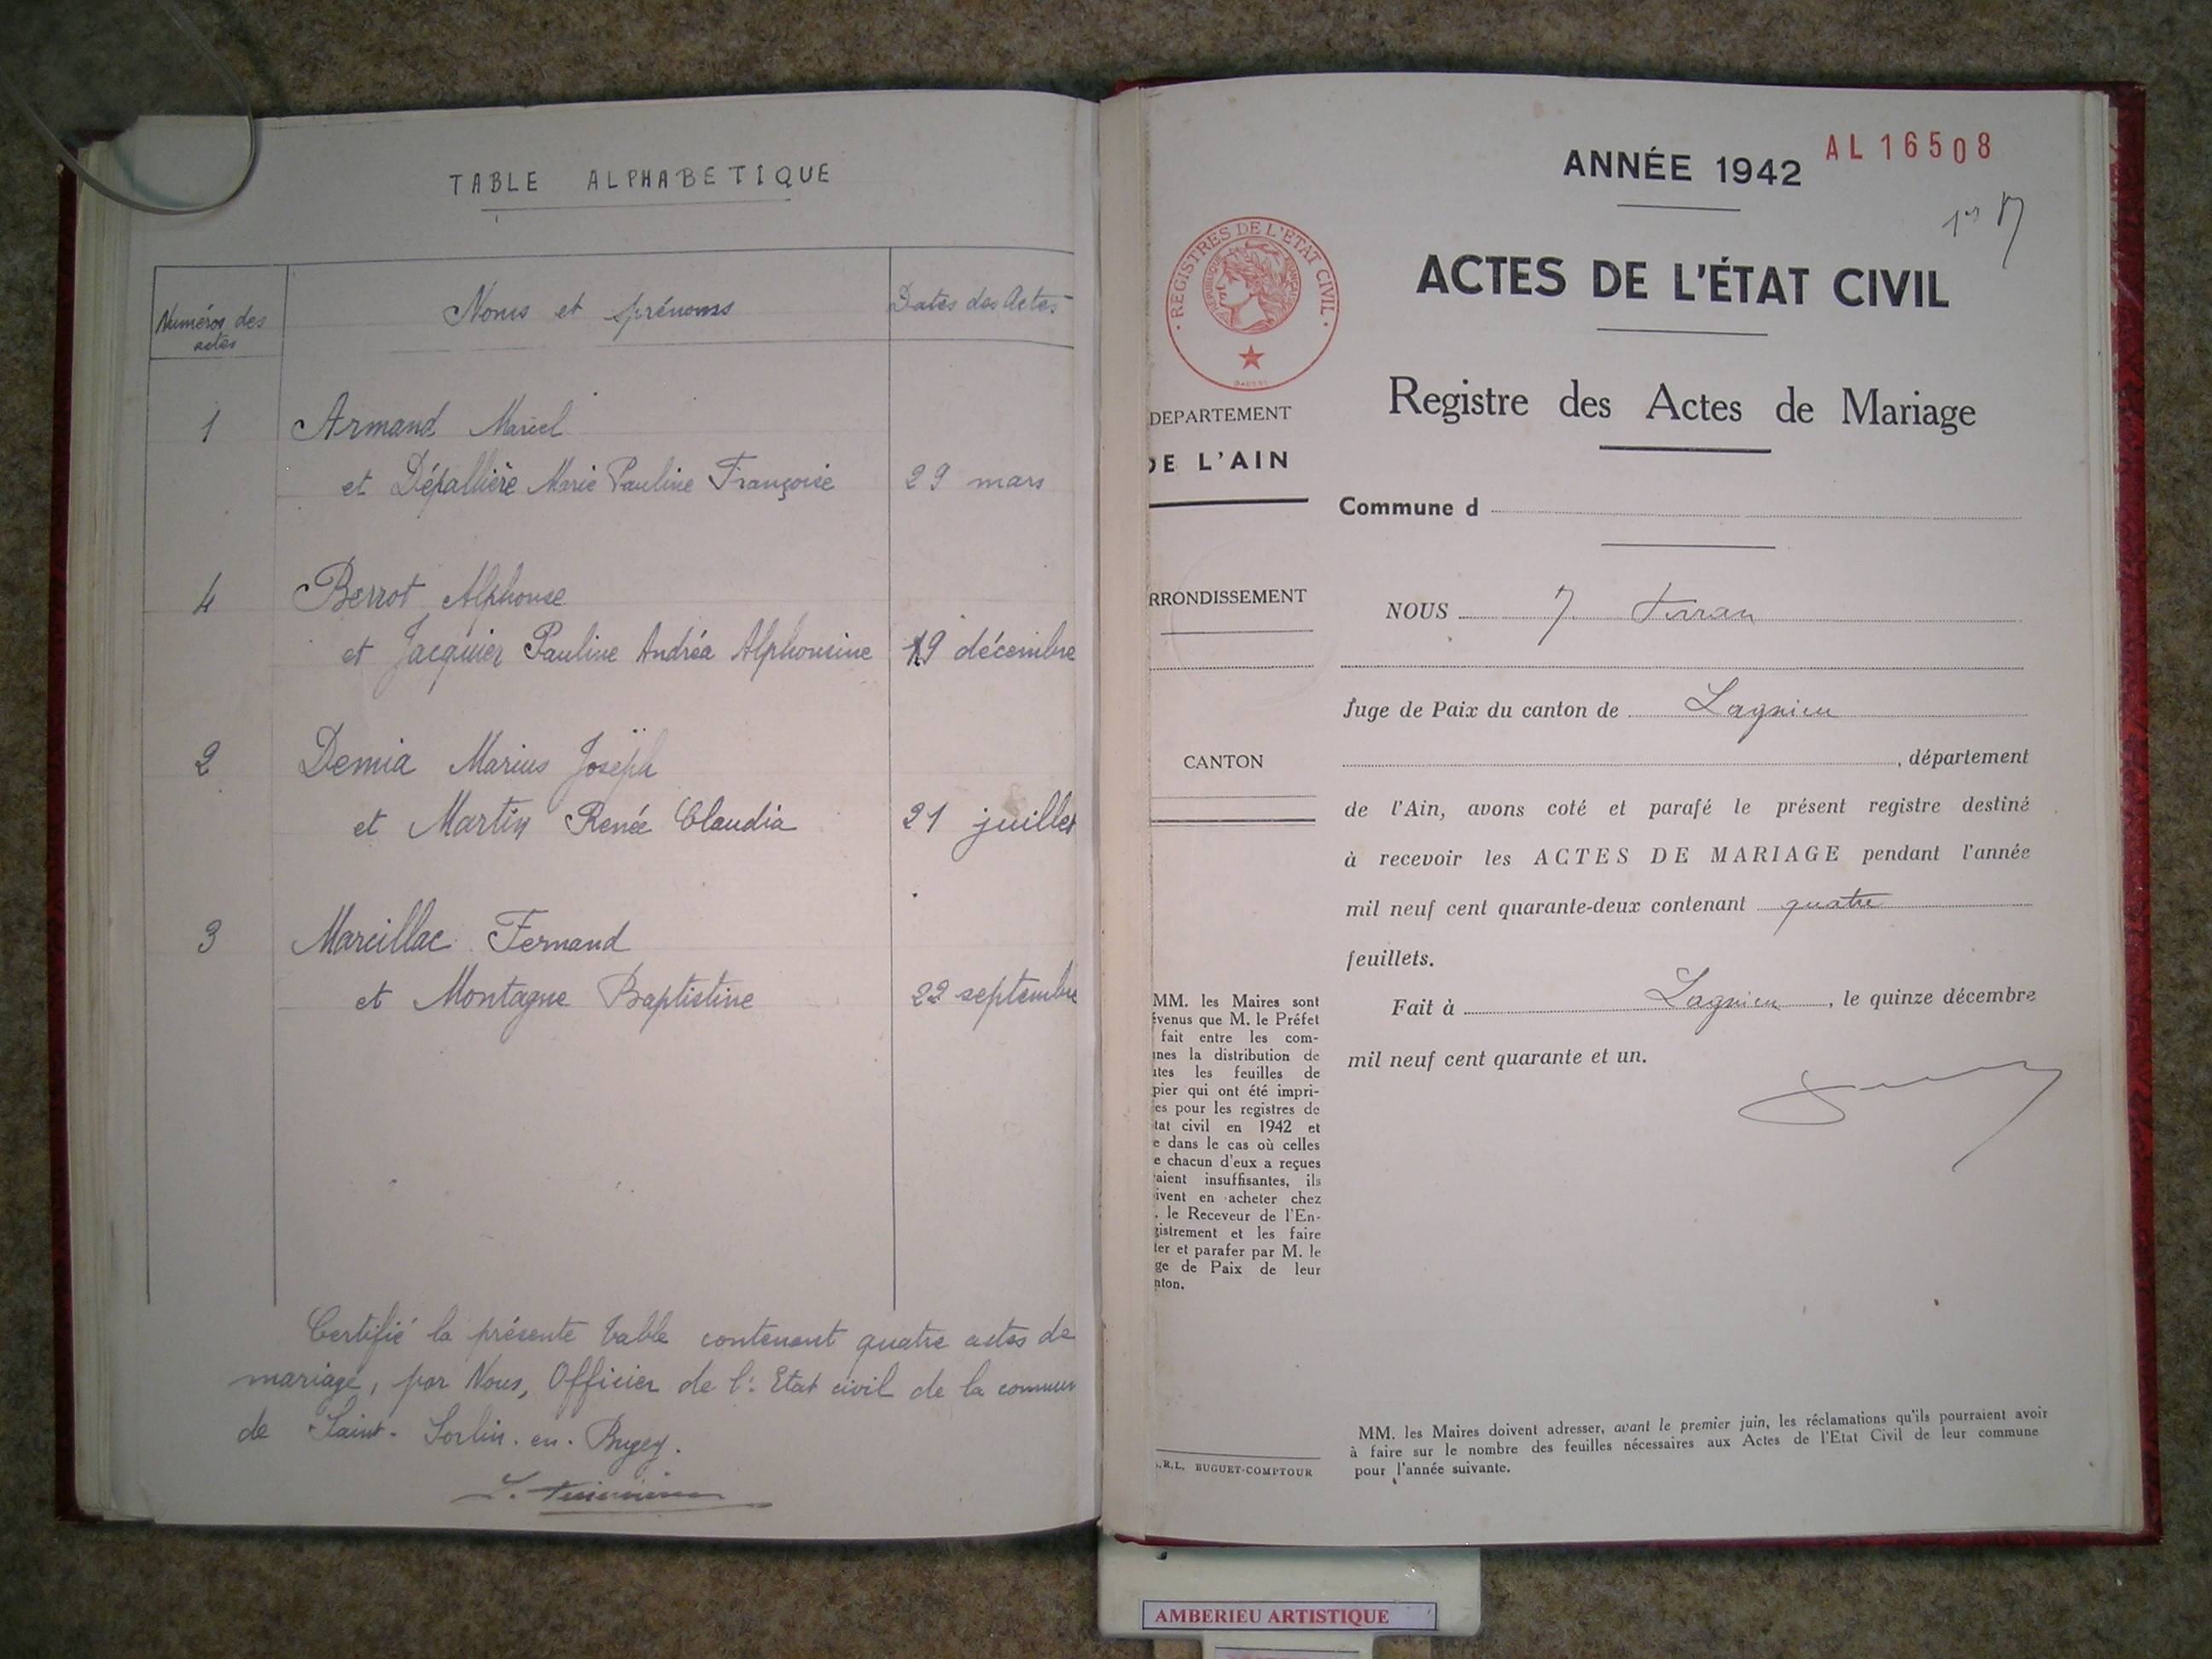 TABLE ALPHABETIQUE
Numéros des
actes
Noms et prénoms
Dates des Actes
1
Armand Marcel
et Dépallière Marie Pauline Françoise
29 mars
4
Berrot Alphonse
et Jacquier Pauline Andréa Alphonsine
19 décembre
2
Demia Marius Joseph
et Martin Renée Claudia
21 juillet
3
Marcillac Fernand
et Montagne Baptistine
22 septembre
Certifié la présente table contenant quatre actes de
mariage, par Nous, Officier de l'Etat civil de la commun
de Saint-Sorlin-en-Bugey.
ANNÉE 1942
AL16508
ACTES DE L'ÉTAT CIVIL
REGISTRES DE L'ETAT CIVIL
REPUBLIQUE FRANÇAISE
Registre des Actes de Mariage
DEPARTEMENT
DE L'AIN
Commune d
RRONDISSEMENT
NOUS
Juge de Paix du canton de Lagnieu
CANTON
, département
de l'Ain, avons coté et parafé le présent registre destiné
à recevoir les ACTES DE MARIAGE pendant l'année
mil neuf cent quarante-deux contenant quatre
feuillets.
Fait à Lagnieu, le quinze décembre
mil neuf cent quarante et un.
MM. les Maires sont
évenus que M. le Préfet
fait entre les com-
nes la distribution de
tes les feuilles de
pier qui ont été impri-
es pour les registres de
tat civil en 1942 et
e dans le cas où celles
e chacun d'eux a reçues
aient insuffisantes, ils
ivent en acheter chez
. le Receveur de l'En-
gistrement et les faire
ter et parafer par M. le
ge de Paix de leur
nton.
.R.L. BUGUET-COMPTOUR
MM. les Maires doivent adresser, avant le premier juin, les réclamations qu'ils pourraient avoir
à faire sur le nombre des feuilles nécessaires aux Actes de l'Etat Civil de leur commune
pour l'année suivante.
AMBERIEU ARTISTIQUE